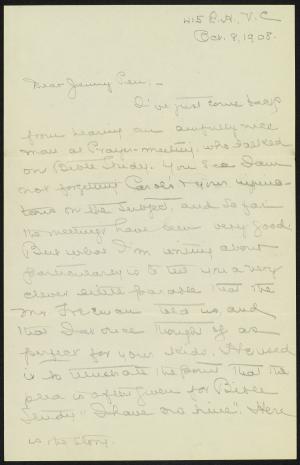 415 R.H., V.C
Oct. 9, 1908.
Dear Jenny Pen, -
I've just come back
from hearing an awfully nice
man at Prayer-meeting, who talked
on Bible Study. You see I am
not forgetting Carol's & your
on the subject, and so far
the meetings have been very good.
But what I'm writing about
particularly is to tell you a very
clever little parable that the
Mr. Freeman told us, and
that I at once thought of as
perfect for your kids. He used
it to illustrate the point that the
plea is often given for Bible
Study "I have no time". Here
is the story.